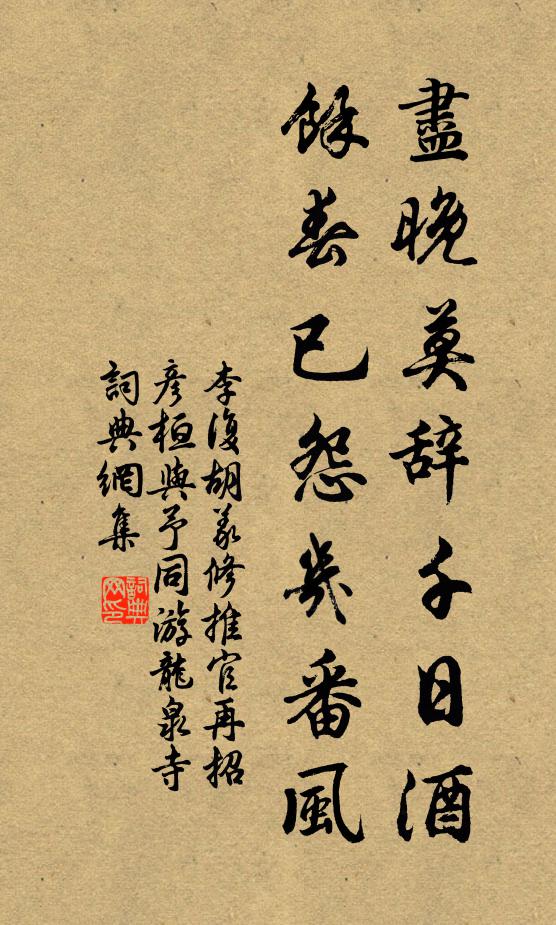 盡晚莫辞千日酒
餘春已怨幾番風
李復胡義修推官再招
彥桓與予同游龍泉寺
詞典網集
詞典網印